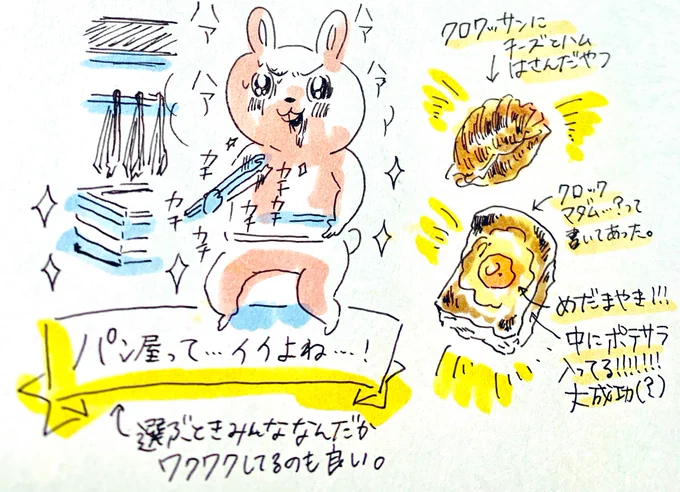 ハァ
ハァ
ハァ
ハァ
ハァ
カチ
カチ
カチ
カチ
カチ
カチ
パン屋って…イイよね…!
選ぶときみんななんだか
ワクワクしてるのも良い。
クロワッサンに
チーズとハム
はさんだやつ
クロック
マダム…?って
書いてあった。
めだまやき!!!
中にポテサラ
入ってる!!!!!!!
大成功(?)